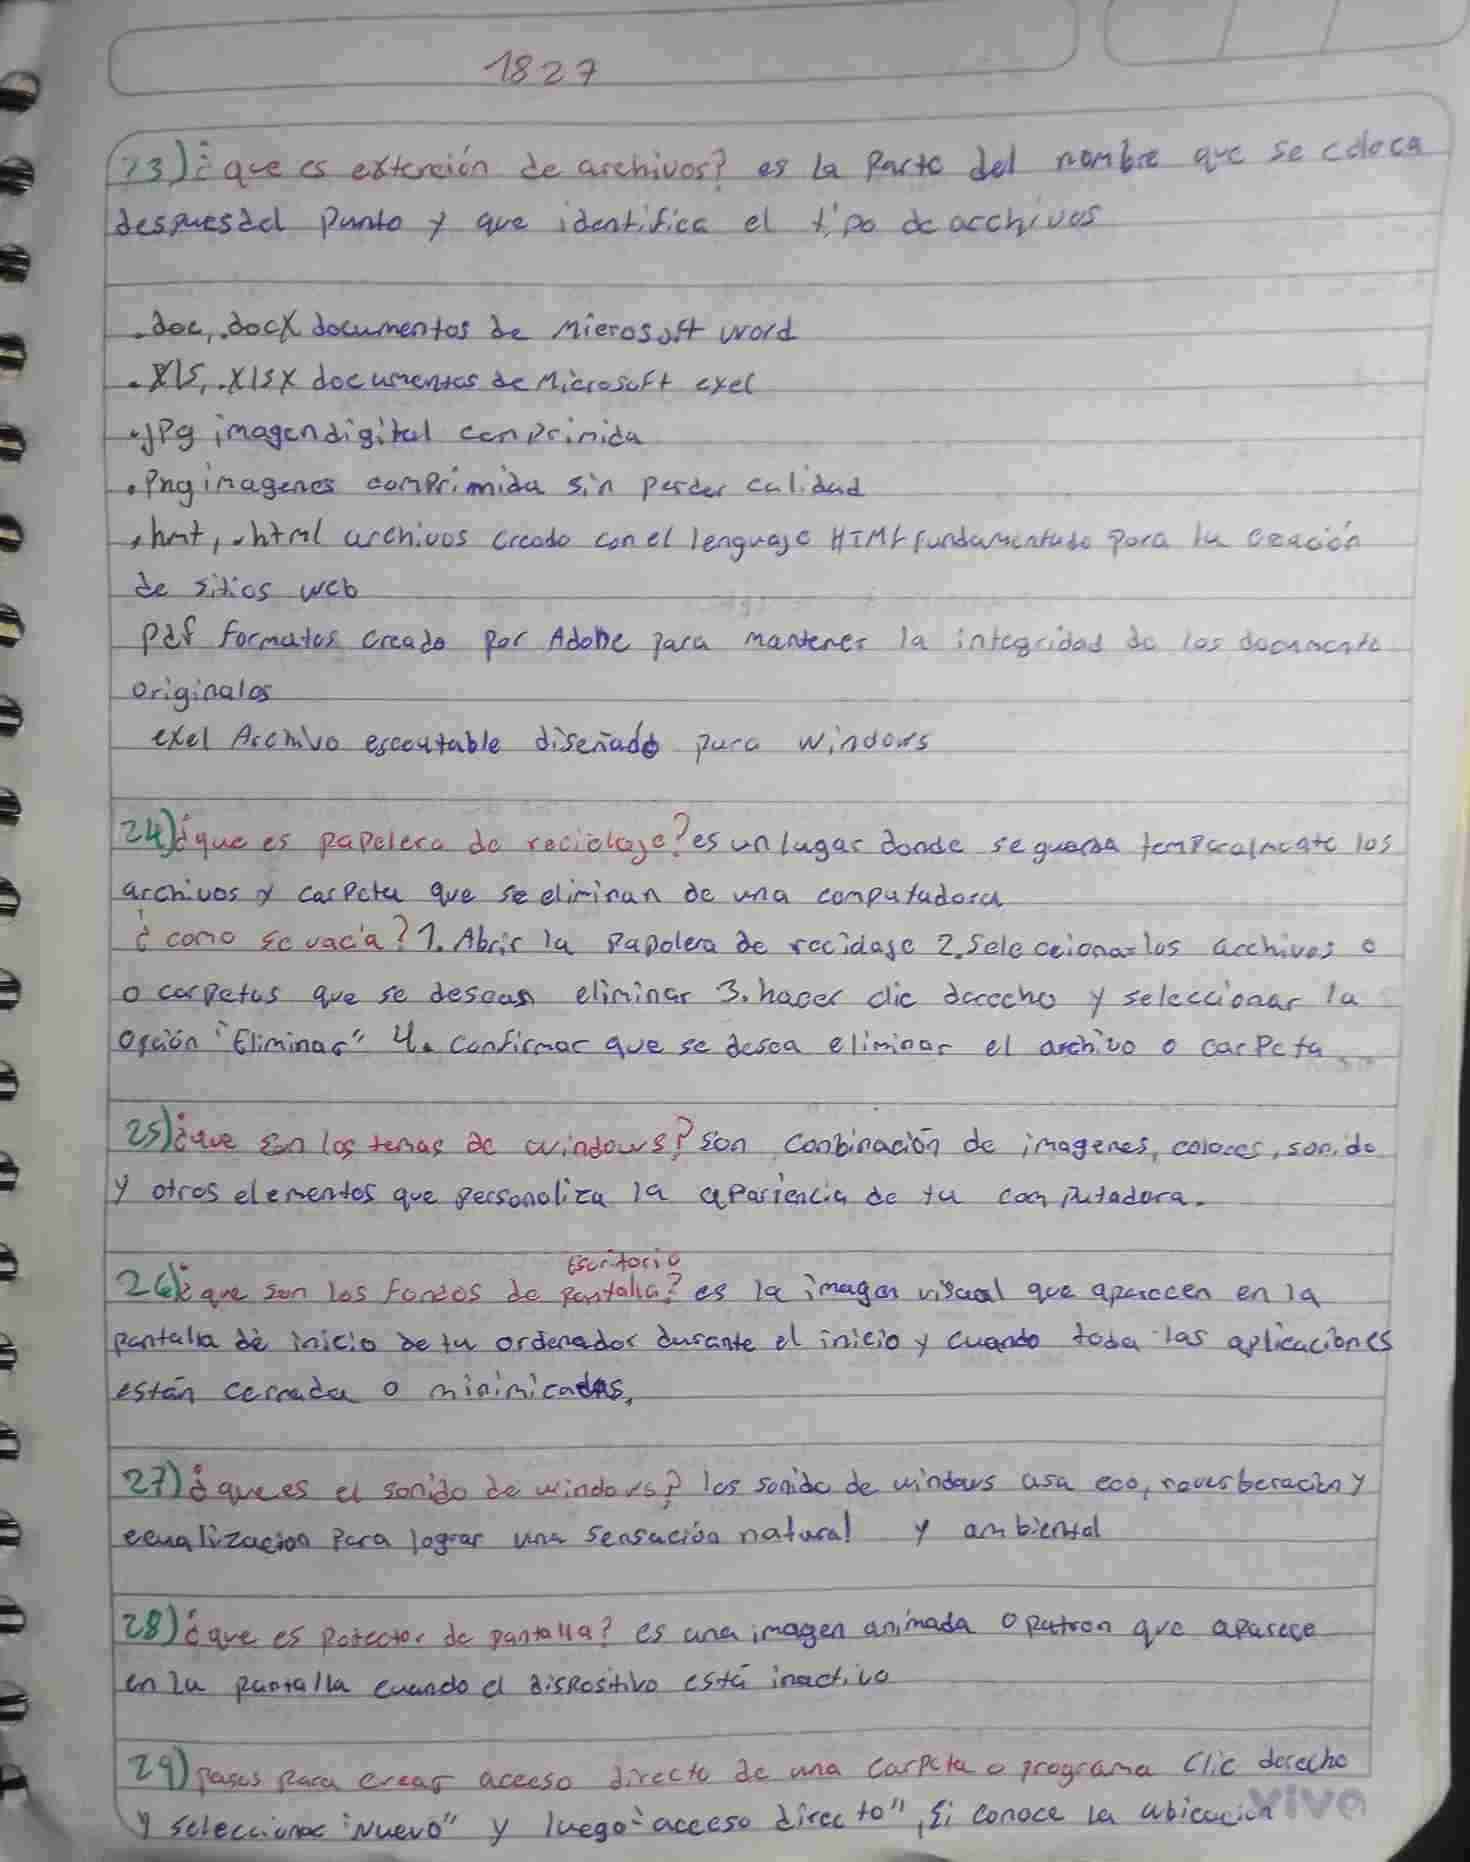 1827
23) ¿que es extención de archivos? es la Parte del nombre que se coloca
despues del Punto y que identifica el tipo de archivos
.doc, .docx documentos de Microsoft word
.xls, .xlsx documentos de Microsoft exel
.jpg imagen digital conprimida
.Png imagenes comprimida sin perder calidad
.hmt, .html archivos creado con el lenguaje HTML fundamentado para la creación
de sitios web
Pdf formatos creado por Adobe para mantener la integridad de los documento
originales
exel Archivo escoutable diseñado para windows
24) ¿que es papelera de reciclaje? es un lugar donde se guarda temporalmente los
archivos y carpeta que se eliminan de una computadora
¿como se vacia? 1. Abrir la Papelera de reciclaje 2. Seleccionar los archivos o
o carpetas que se desean eliminar 3. hacer clic derecho y seleccionar la
opción "Eliminar" 4. Confirmar que se desea eliminar el archivo o carpeta
25) ¿que son los temas de windows? son conbinación de imagenes, colores, sonido
y otros elementos que personaliza la apariencia de tu computadora.
Escritorio
26) ¿que son los fondos de Pantalla? es la imagen visual que aparecen en la
pantalla de inicio de tu ordenador durante el inicio y cuando toda las aplicaciones
están cerrada o minimicadas,
27) ¿que es el sonido de windows? los sonido de windows usa eco, reverberación y
ecualizacion Para lograr una sensación natural y ambiental
28) ¿que es Potector de pantalla? es una imagen animada o patron que aparece
en la pantalla cuando el dispositivo está inactivo
29) pasos para crear acceso directo de una carpeta o programa Clic derecho
y seleccionar "Nuevo" y luego "acceso directo", Si conoce la ubicación
vivo